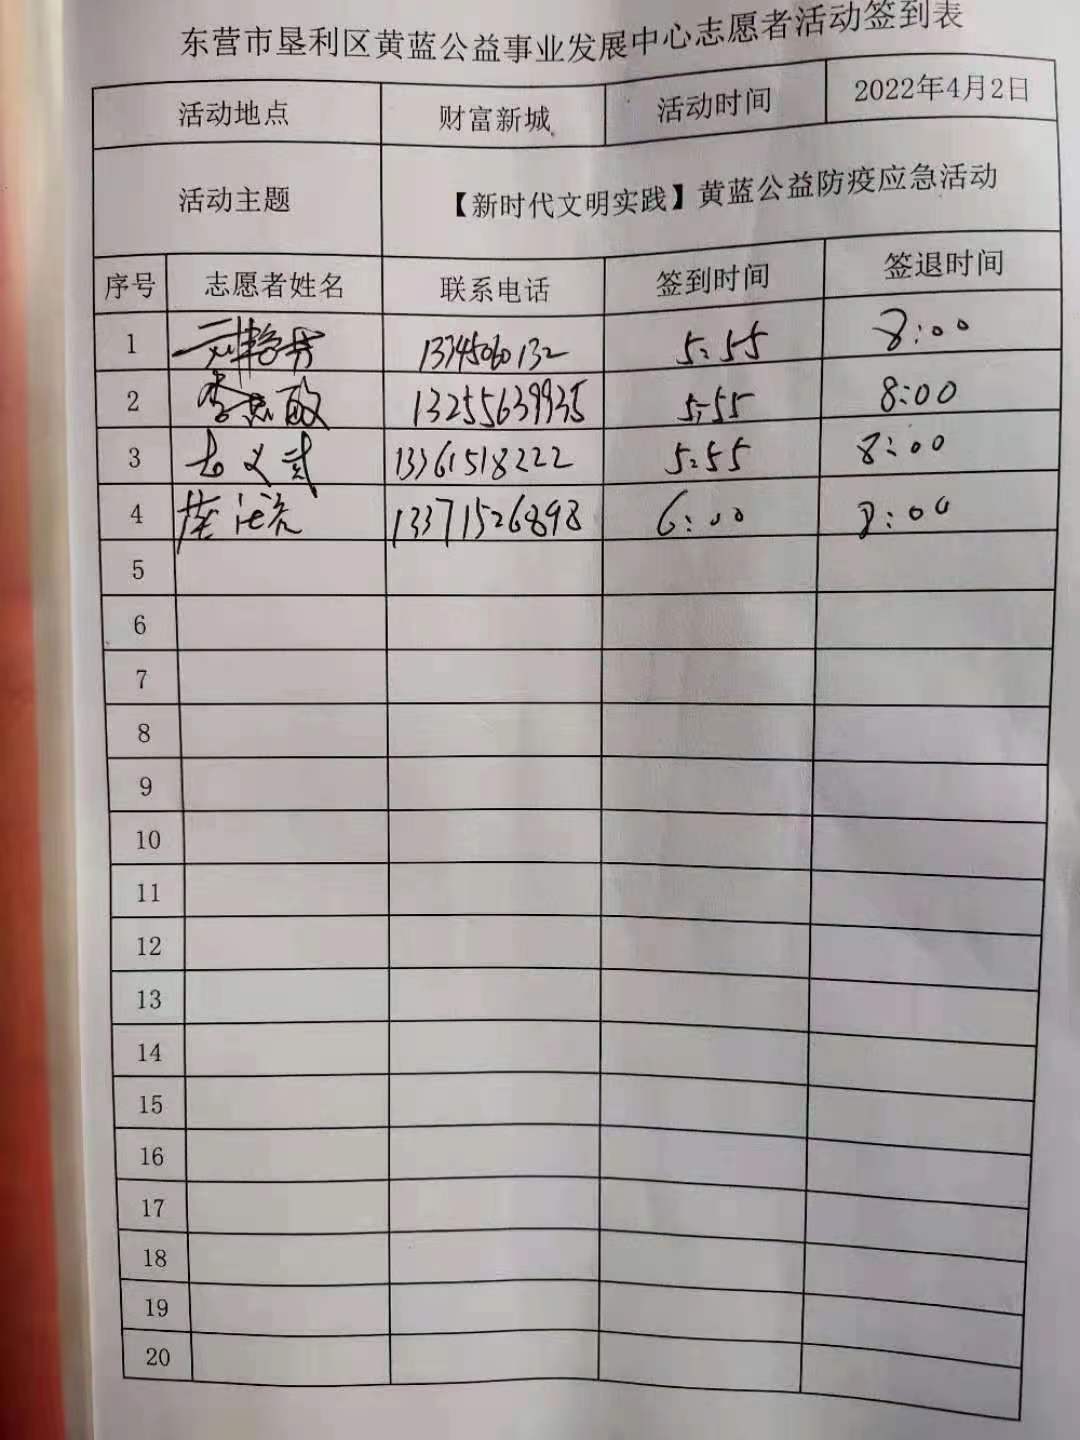 东营市垦利区黄蓝公益事业发展中心志愿者活动签到表
活动地点 财富新城 活动时间 2022年4月2日
活动主题 【新时代文明实践】黄蓝公益防疫应急活动
序号 志愿者姓名 联系电话 签到时间 签退时间
1 5:55 8:00
2 李志敏 13255639935 5:55 8:00
3 13361518222 5:55 8:00
4 13371526898 6:00 8:00
5
6
7
8
9
10
11
12
13
14
15
16
17
18
19
20